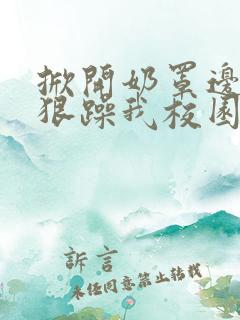 掀開奶罩邊
狠躁我校園
訴言
未经同意禁止转载